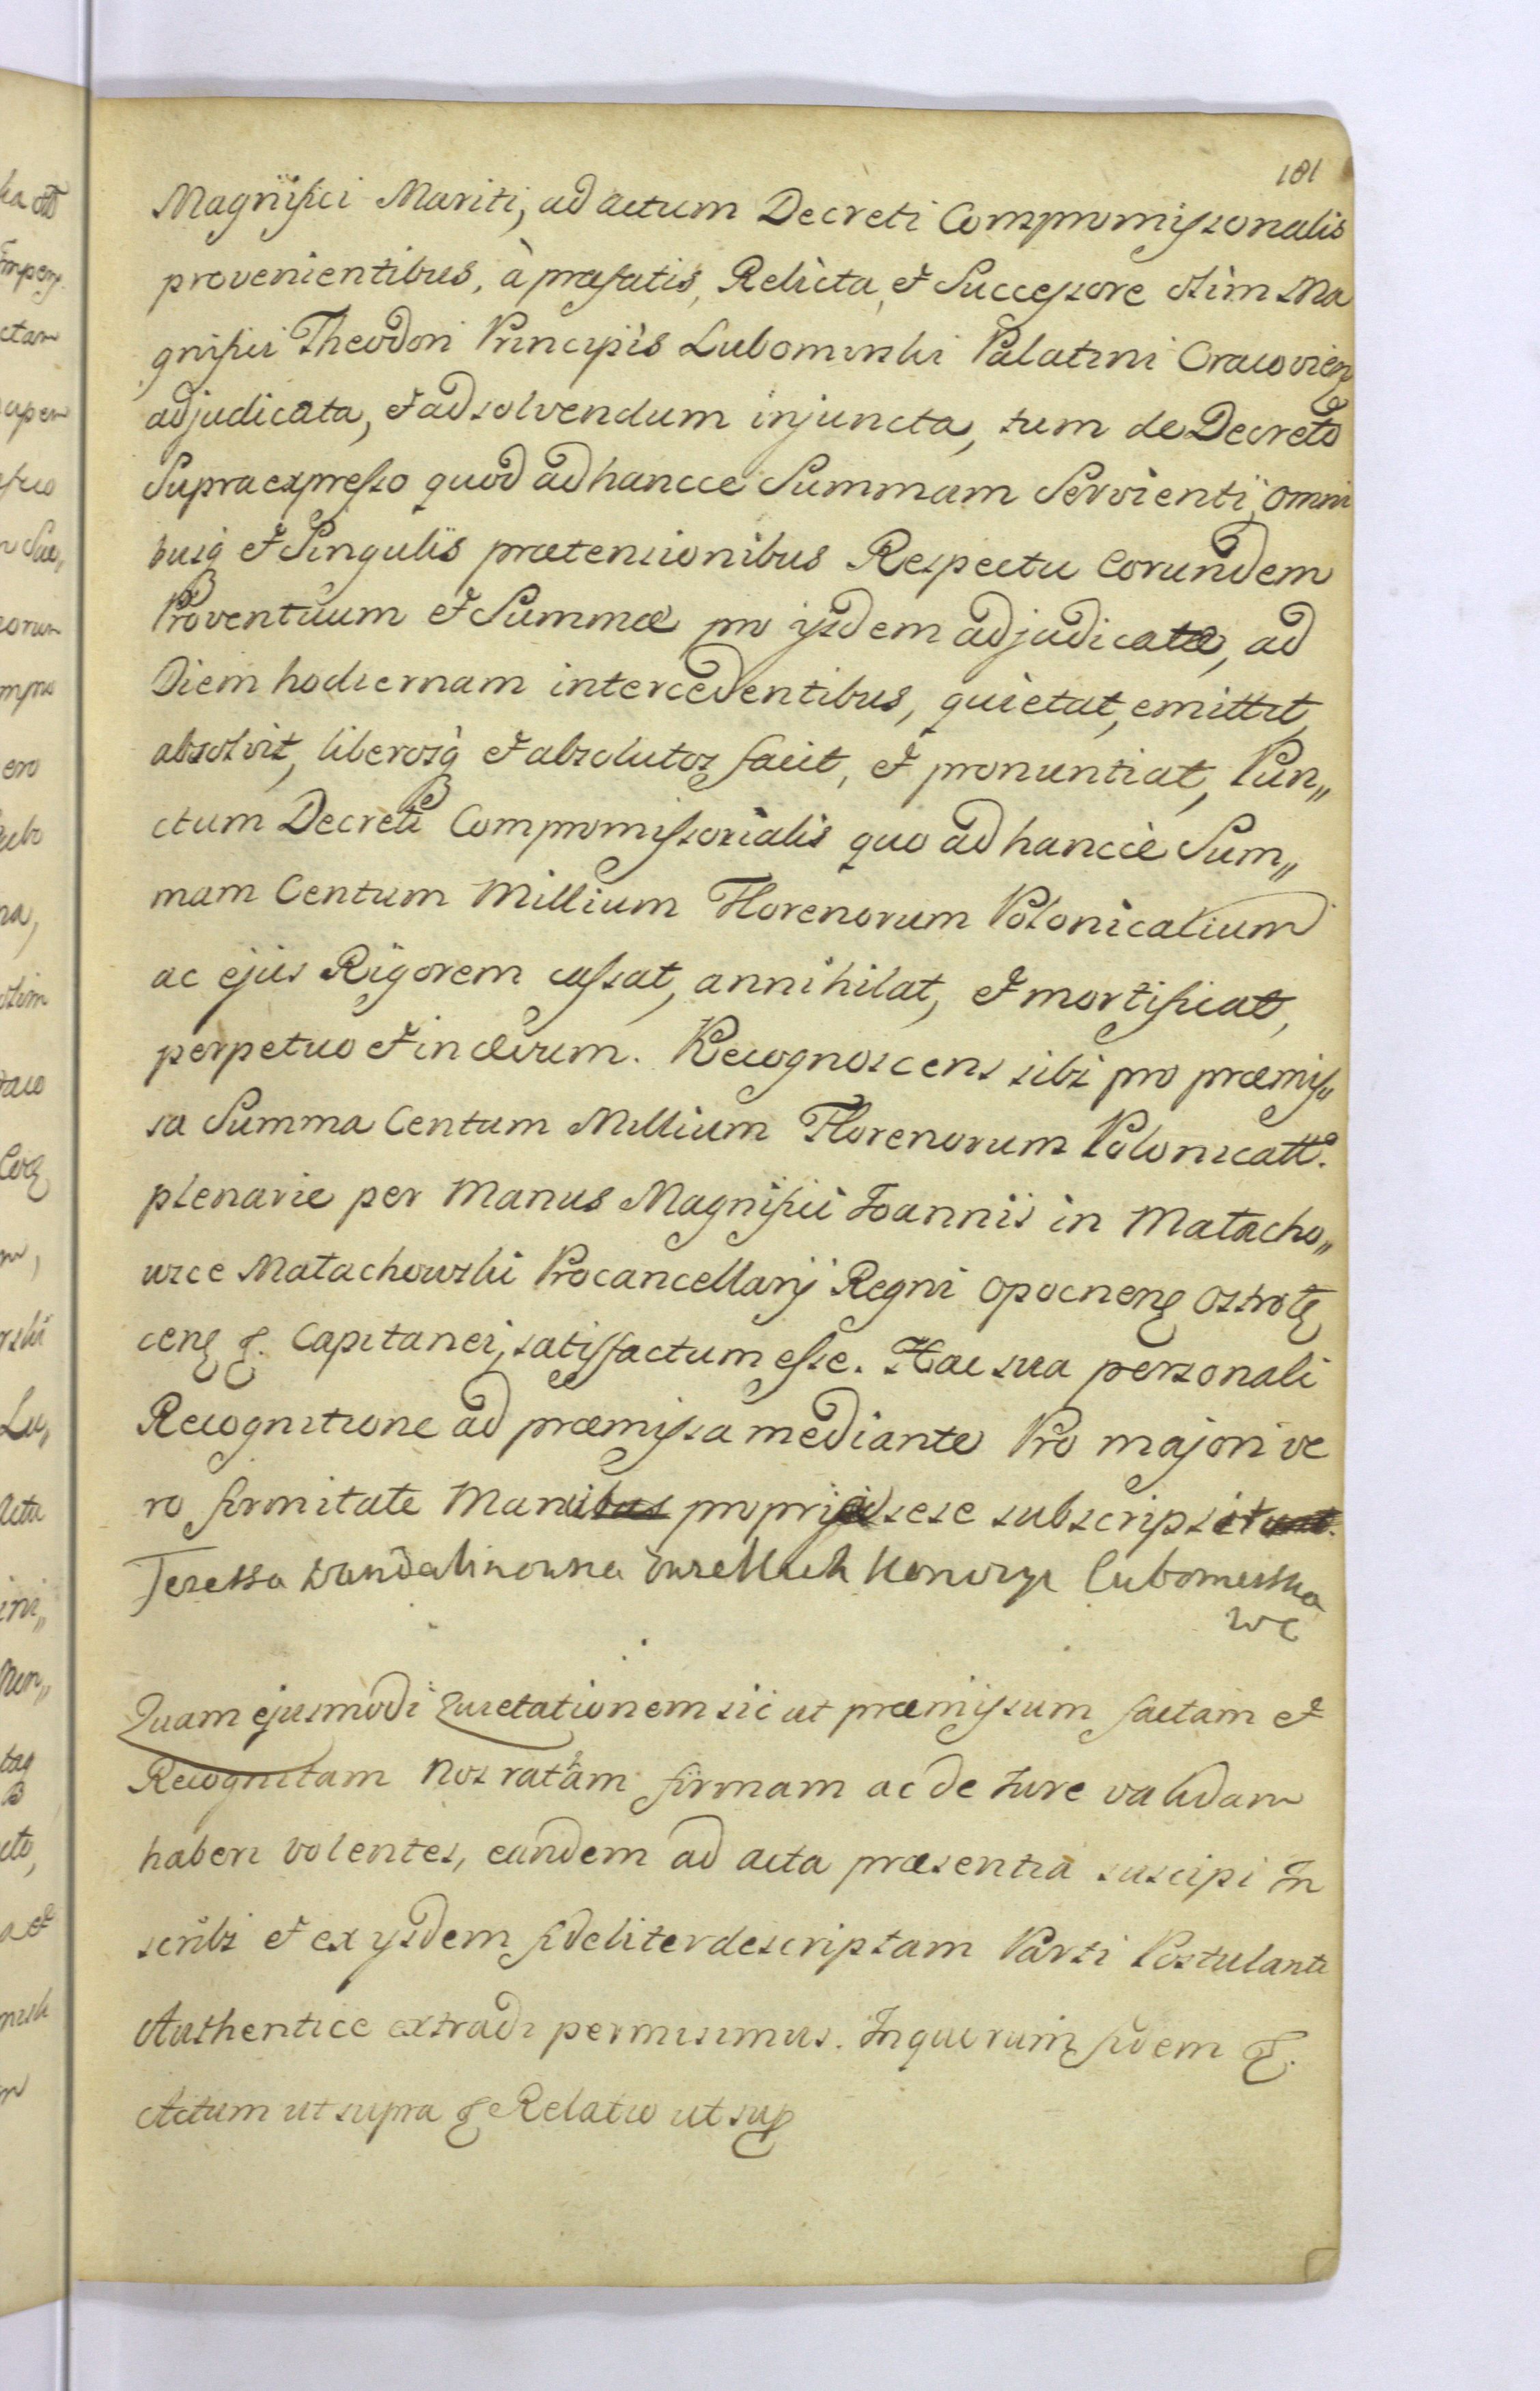 181
Magnifici Mariti, ad actum Decreti Compromissorialis
provenientibus, à præfatis, Relicta, et Successore olim Ma
gnifici Theodori Principis Lubomirski Palatini Cracovien
adjudicata, et ad solvendum injuncta, tum de Decreto
Supraexpresso quod ad hancce Summam Servienti, omni
busq et Singulis prætensionibus Respectu eorundem
Proventuum et Summæ pro ijsdem adjudicatæ, ad
Diem hodiernam intercedentibus, quietat, emittit,
absolvit, liberosq et absolutos facit, et pronuntiat, Pun„
ctum Decreti Compromissorialis quo ad hancce Sum„
mam Centum Millium Florenorum Polonicalium
ac ejus Rigorem cassat, annihilat, et mortificat,
perpetuo et in ævum. Recognoscens sibi pro præmis„
sa Summa Centum Millium Florenorum Polonicall.
plenarie per Manus Magnifici Joannis in Małacho„
wice Małachowski Procancellarij Regni Opocnen Ostrołę
cen &. Capitanei, satisfactum esse. Hac sua personali
Recognitione ad præmissa mediante Pro majori ve
ro firmitate Manibus proprijs sese subscripsit
Teressa Lubomirska
WC
Quam ejusmodi Quietationem sic ut præmissum factam et
Recognitam Nos ratam firmam ac de Jure validam
haberi volentes, eandem ad acta præsentia suscipi In
scribi et ex ijsdem fideliter descriptam Parti Postulanti
Authentice extradi permisimus. In quorum fidem &.
Actum ut supra & Relatio ut sup